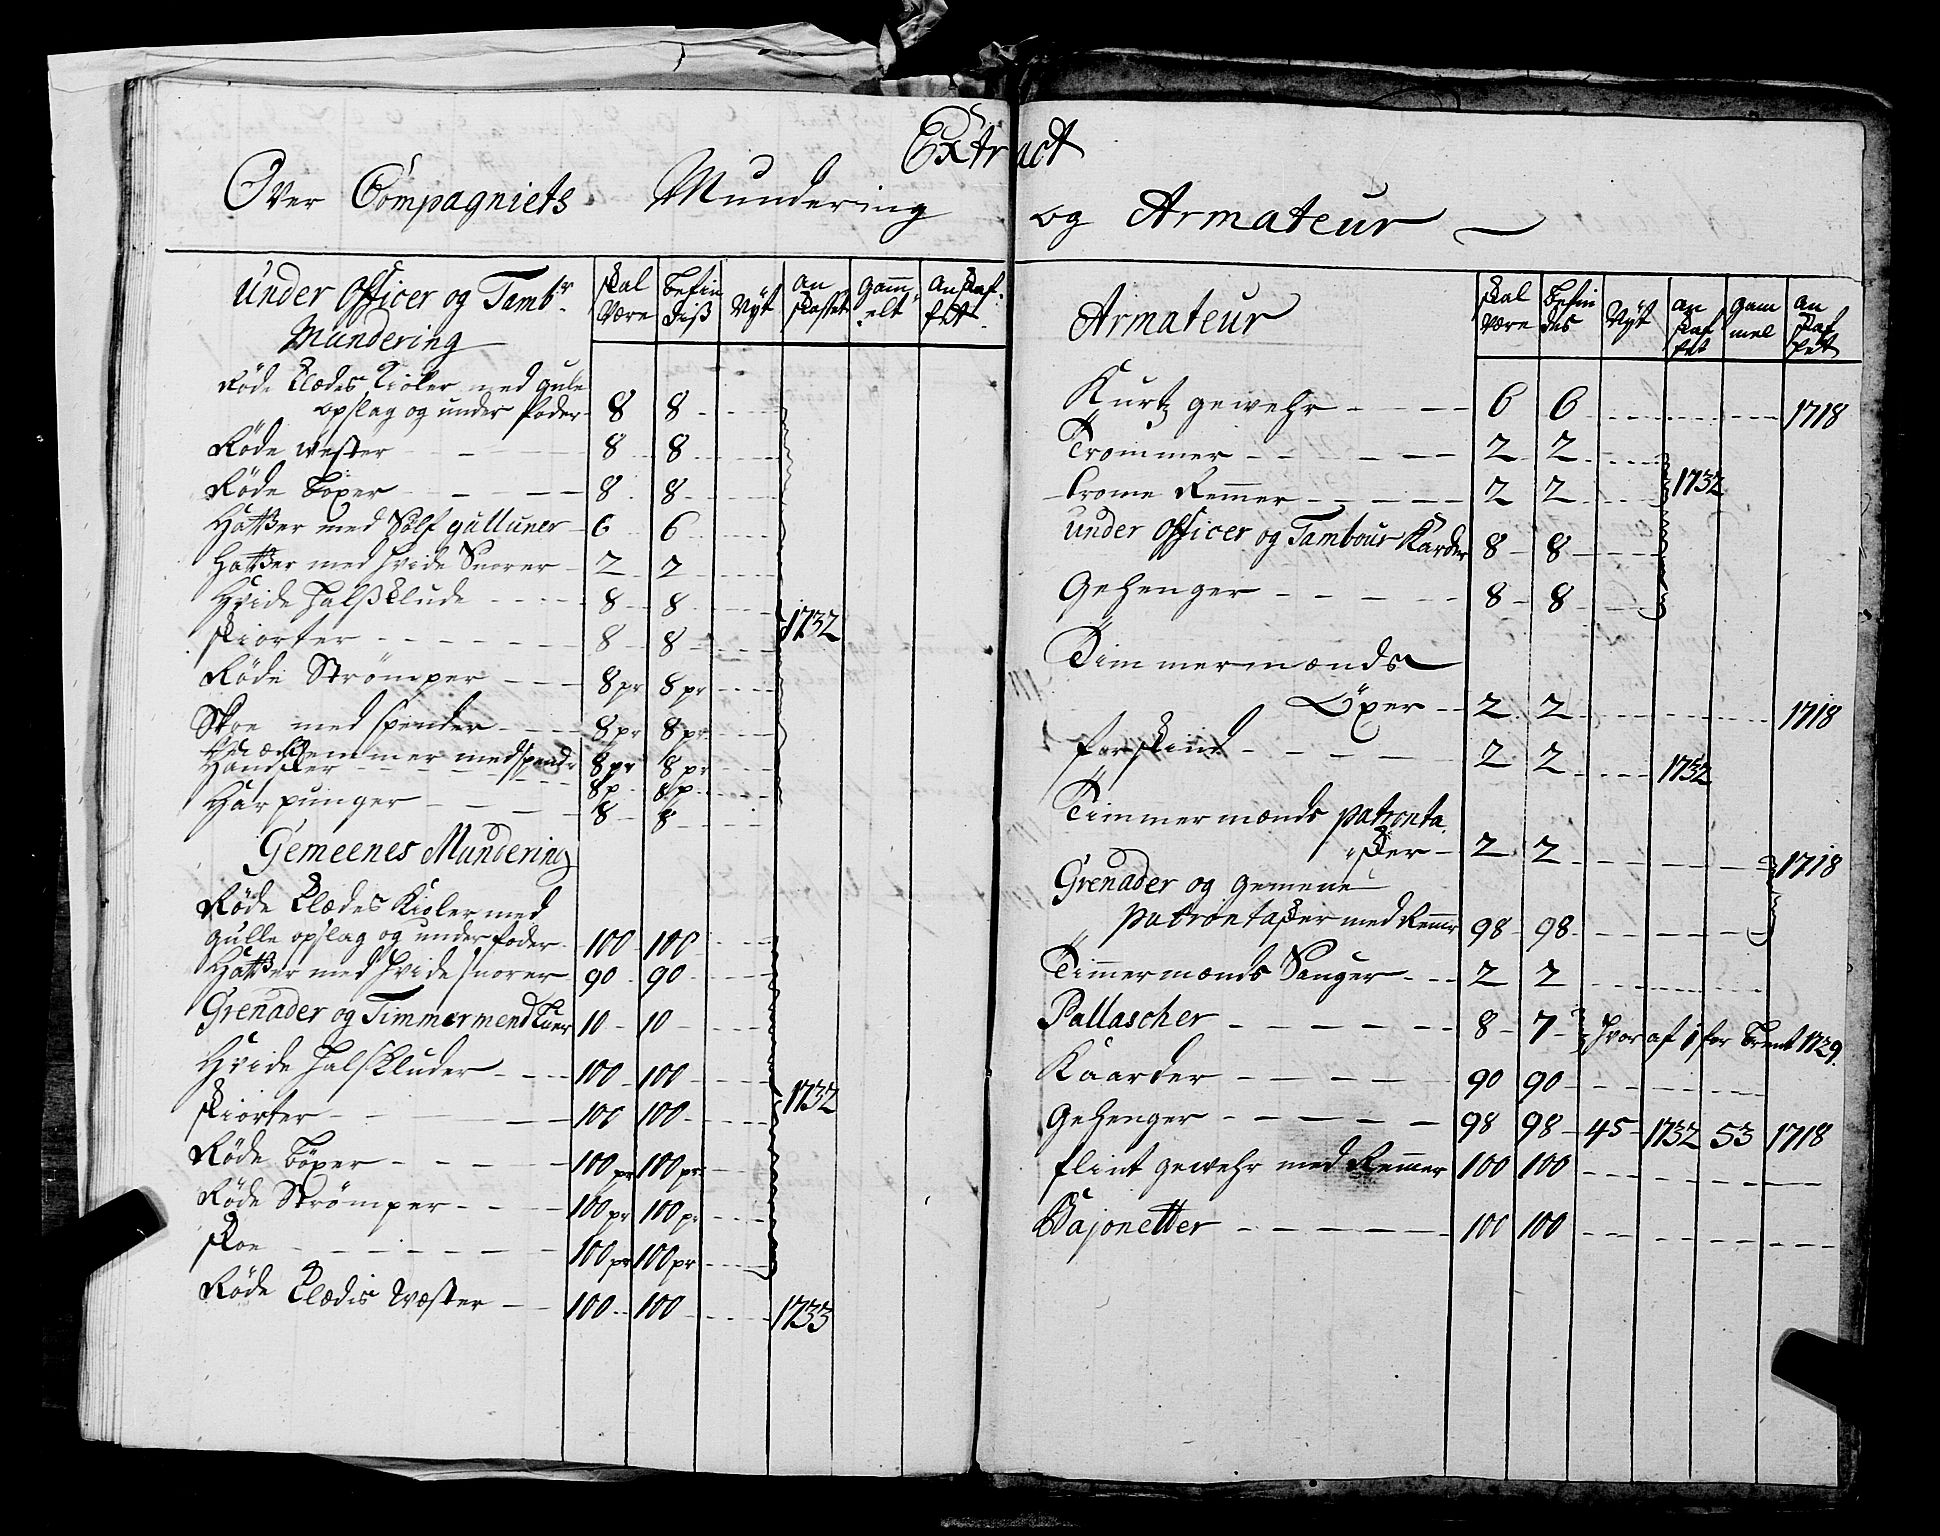 Extract
Over Compagniets Mundering og Armateur
Under Officer og Tambr
Mundering
Skal Være
befin diß
Nyt
an skaffet
gamelt
an skaffet
Røde Klædes Kioler med gule
opslag og under foder 8 8
Røde wester 8 8
Røde böxer 8 8
Hatter med Sølf galluner 6 6
Hatter med hvide Snorer 2 2
Hvide halßklude 8 8
Skiorter 8 8 1732
Røde Strømper 8 pr 8 pr
Skoe med spender 8 pr 8 pr
Knæ Remmer med spendr 8 pr 8 pr
Handsker 8 p 8 p
Har punger 8 8
Gemeenes Mundering
Røde Klædes Kioler med
gulle opslag og under foder 100 100
Hatter med hvide snorer 90 90
Grenader og Timmermend Luer 10 10
Hvide halskluder 100 100
Skiorter 100 100 1732
Røde böxer 100 pr 100 pr
Røde Strømper 100 pr 100 pr
Skoe 100 pr 100 pr
Røde Klædis Wæster 100 100 1733
Armateur
Skal være
befin des
Nyt
an skaf fet
gam mel
an skaf fet
Kurtz gewehr 6 6 1718
Trommer 2 2
Trome Remer 2 2 1732
Under Officer og Tambour Karder 8 8
Gehenger 8 8
Timmermænds
Öxer 2 2 1718
forskind 2 2 1732
Timmermænds patronta
sker 2 2 1718
Grenader og gemene
patrontasker med Remr 98 98
Timermænds Sauger 2 2
Pallascher 8 7 hvor af 1 for brent 1729.
Kaarder 90 90
Gehenger 98 98 45 1732 53 1718
flint gewehr med Remer 100 100
Bajonetter 100 100